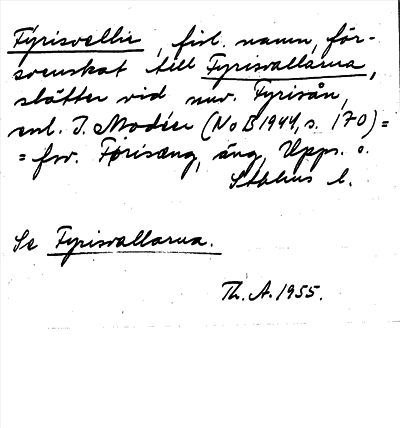 Fýrisvellir, fisl. namn, för-
svenskat till Fyrisvallarna,
slätter vid nuv. Fyrisån,
enl. I. Modéer (NoB 1944, s. 170) =
= fsv. Førisæng, äng, Upps. o.
Stkhms l.
Se Fyrisvallarna.
Th. A. 1955.